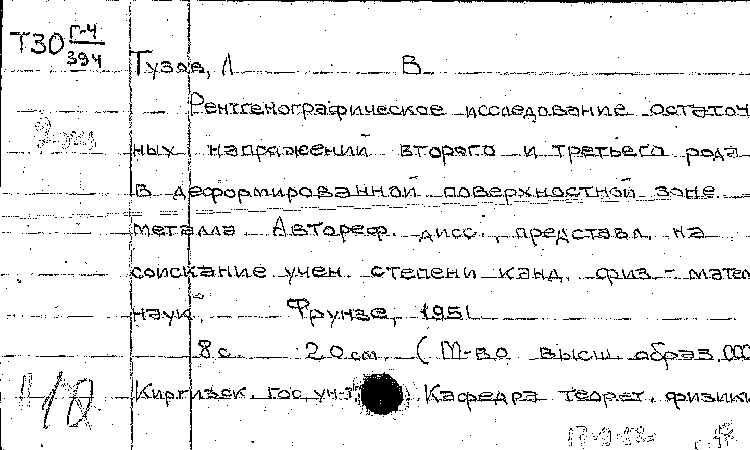 Т30 Г-4
394
Тузов, Л В
Рентгенографическое исследование остаточ
ных напряжений второго и третьего рода
в деформированной поверхностной зоне
металла. Автореф. дисс., представл. на
соискание учен. степени канд. физ-матем
наук. Фрунзе, 1951
8 с. 20 см. (М-во высш. образ. ССС
Киргизск. гос. ун-т Кафедра теорет. физики